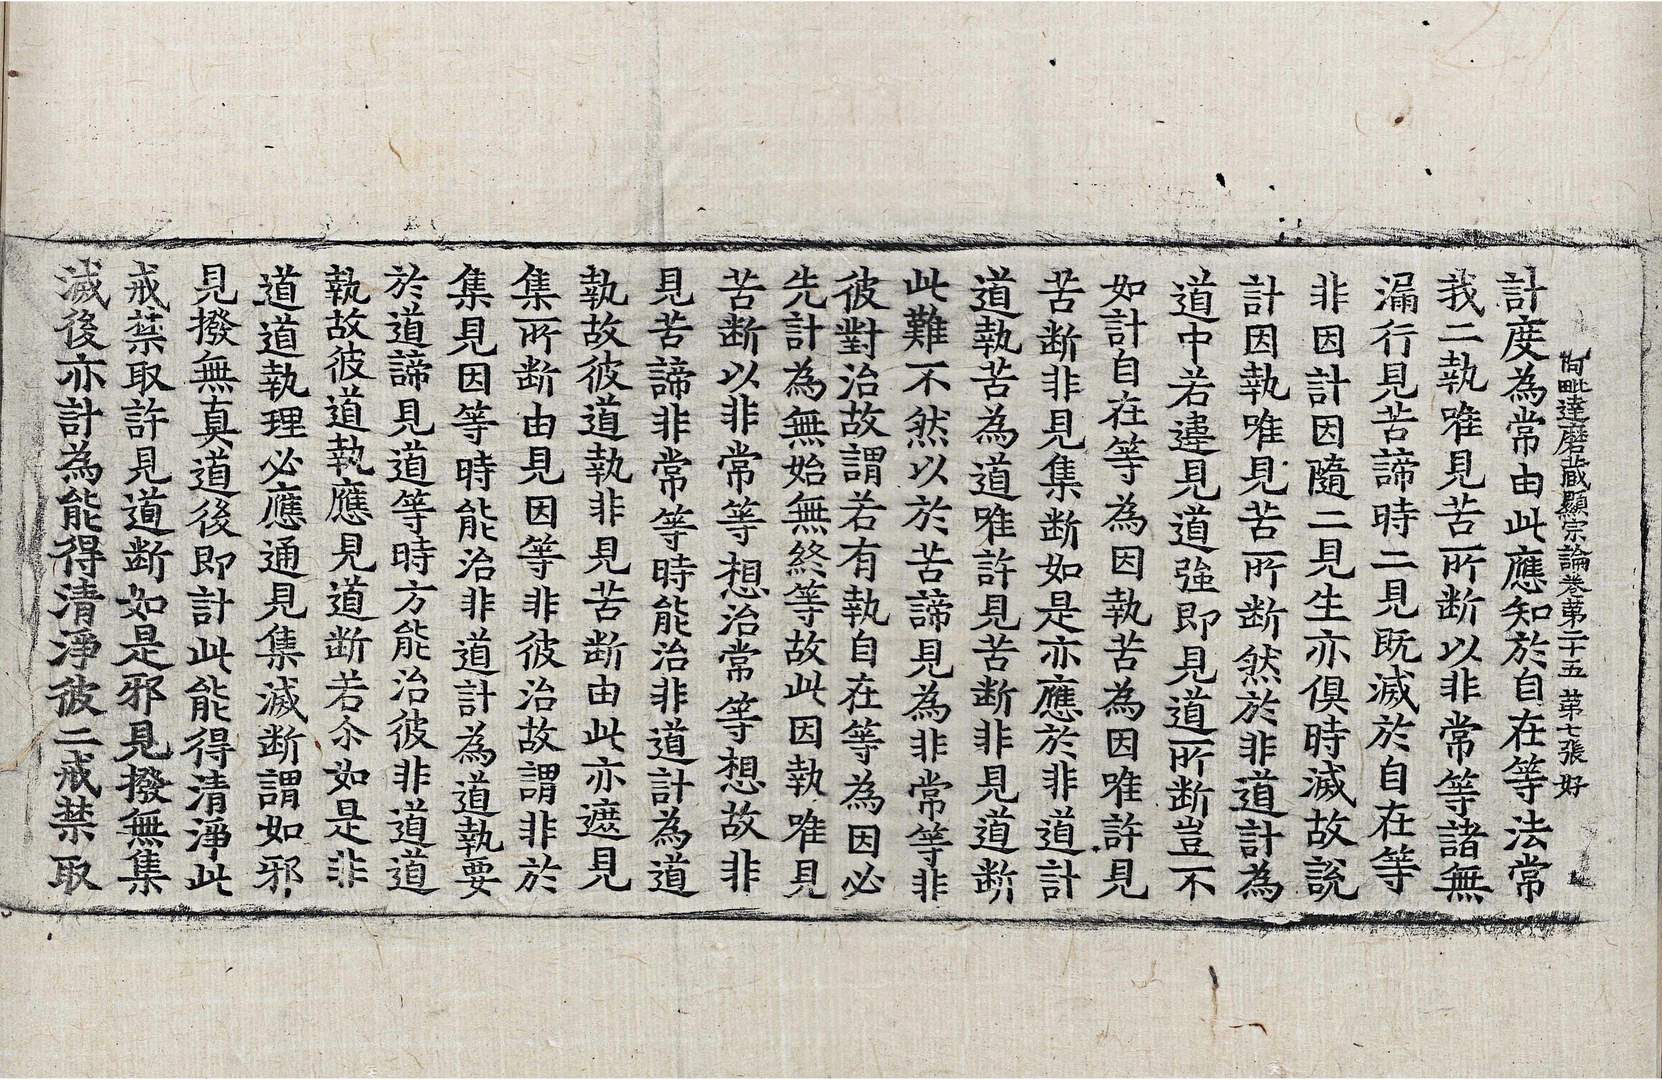 阿毗達磨藏顯宗論卷第二十五 第七張 好
計度為常由此應知於自在等法常
我二執唯見苦所断以非常等諸無
漏行見苦諦時二見既滅於自在等
非因計因隨二見生亦俱時滅故説
計因執唯見苦所断然於非道計為
道中若違見道強即見道所断豈不
如計自在等為因執苦為因唯許見
苦断非見集断如是亦應於非道計
道執苦為道唯許見苦断非見道断
此難不然以於苦諦見為非常等非
彼對治故謂若有執自在等為因必
先計為無始無終等故此因執唯見
苦断以非常等想治常等想故非
見苦諦非常等時能治非道計為道
執故彼道執非見苦断由此亦遮見
集所断由見因等非彼治故謂非於
集見因等時能治非道計為道執要
於道諦見道等時方能治彼非道道
執故彼道執應見道断若尒如是非
道道執理必應通見集滅断謂如邪
見撥無真道後即計此能得清淨此
戒禁取許見道断如是邪見撥無集
滅後亦計為能得清淨彼二戒禁取